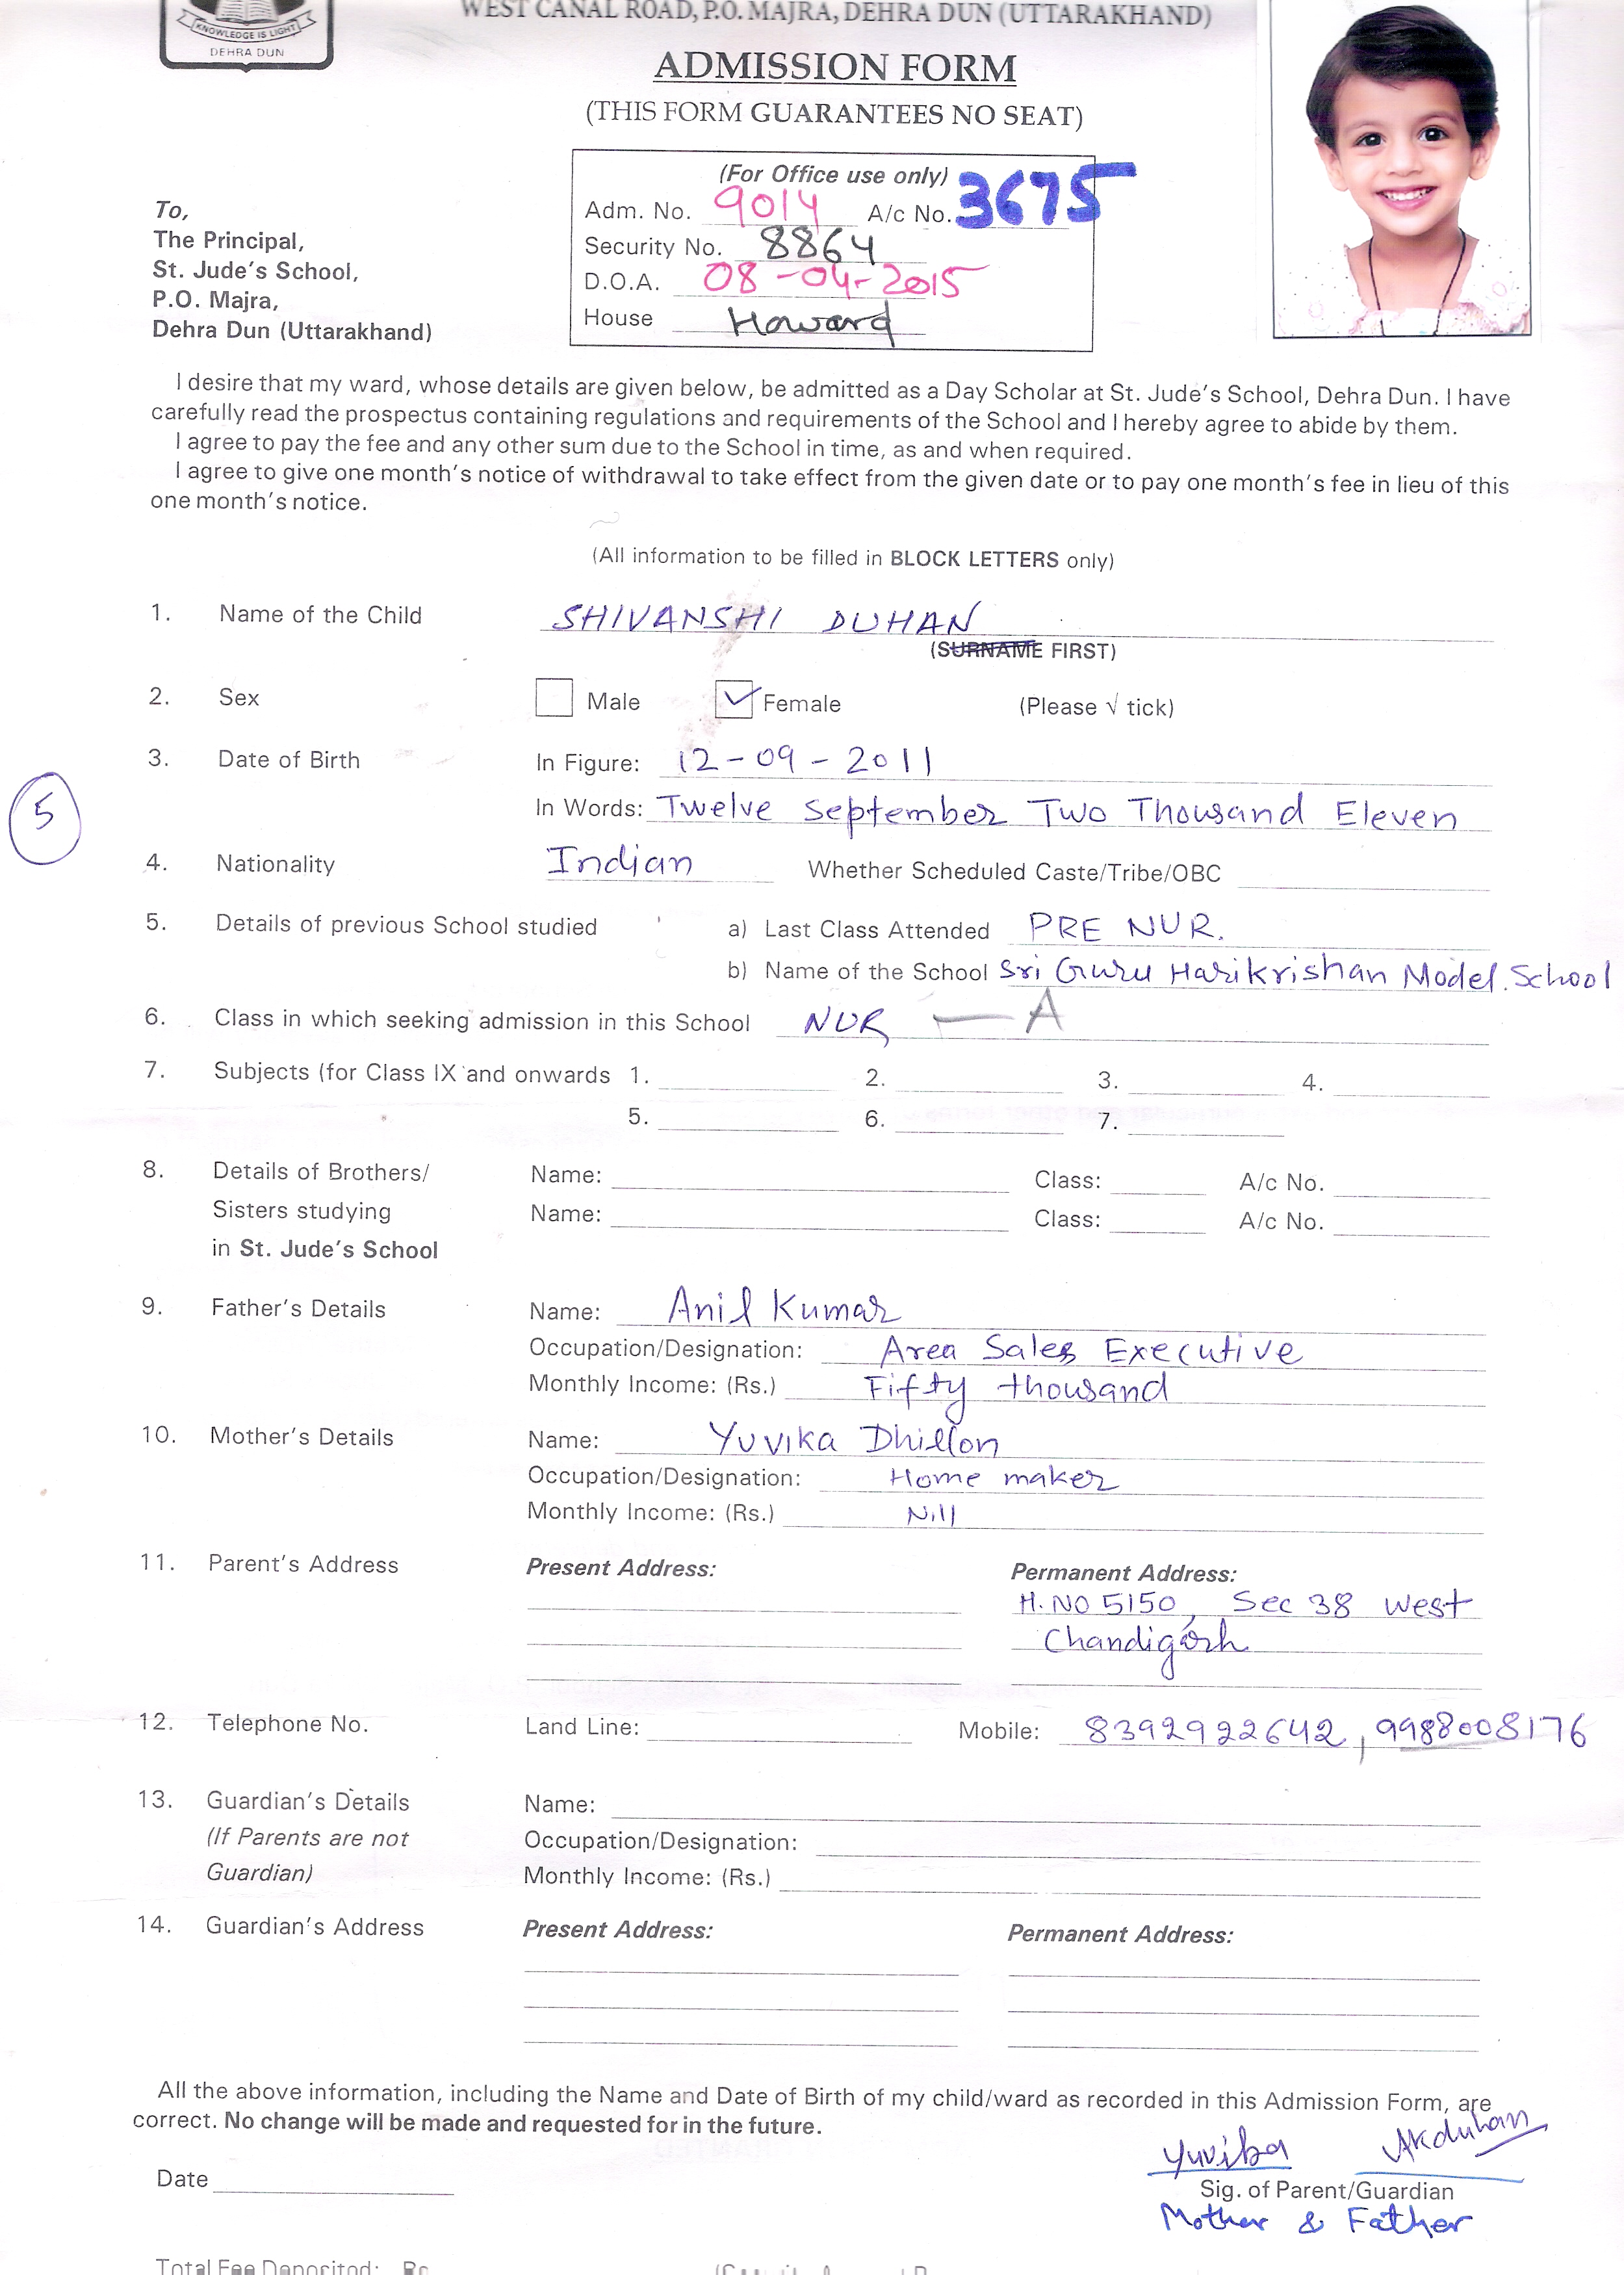 WEST CANAL ROAD, P.O. MAJRA, DEHRA DUN (UTTARAKHAND)
KNOWLEDGE IS LIGHT
DEHRA DUN
ADMISSION FORM
(THIS FORM GUARANTEES NO SEAT)
(For Office use only)
Adm. No. 9014 A/c No. 3675
Security No. 8864
D.O.A. 08-04-2015
House Howard
To,
The Principal,
St. Jude's School,
P.O. Majra,
Dehra Dun (Uttarakhand)
I desire that my ward, whose details are given below, be admitted as a Day Scholar at St. Jude's School, Dehra Dun. I have
carefully read the prospectus containing regulations and requirements of the School and I hereby agree to abide by them.
I agree to pay the fee and any other sum due to the School in time, as and when required.
I agree to give one month's notice of withdrawal to take effect from the given date or to pay one month's fee in lieu of this
one month's notice.
(All information to be filled in BLOCK LETTERS only)
1. Name of the Child SHIVANSHI DUHAN
(SURNAME FIRST)
2. Sex Male ✓ Female (Please √ tick)
3. Date of Birth In Figure: 12-09-2011
5
In Words: Twelve September Two Thousand Eleven
4. Nationality Indian Whether Scheduled Caste/Tribe/OBC
5. Details of previous School studied a) Last Class Attended PRE NUR.
b) Name of the School Sri Guru Harikrishan Model. School
6. Class in which seeking admission in this School NUR — A
7. Subjects (for Class IX and onwards 1. 2. 3. 4.
5. 6. 7.
8. Details of Brothers/ Name: Class: A/c No.
Sisters studying Name: Class: A/c No.
in St. Jude's School
9. Father's Details Name: Anil Kumar
Occupation/Designation: Area Sales Executive
Monthly Income: (Rs.) Fifty thousand
10. Mother's Details Name: Yuvika Dhillon
Occupation/Designation: Home maker
Monthly Income: (Rs.) Nill
11. Parent's Address Present Address: Permanent Address:
H. NO 5150, Sec 38 West
Chandigarh
12. Telephone No. Land Line: Mobile: 8392922642, 9988008176
13. Guardian's Details Name:
(If Parents are not Occupation/Designation:
Guardian) Monthly Income: (Rs.)
14. Guardian's Address Present Address: Permanent Address:
All the above information, including the Name and Date of Birth of my child/ward as recorded in this Admission Form, are
correct. No change will be made and requested for in the future.
Yuvika Akduhan
Date Sig. of Parent/Guardian
Mother & Father
Total Fee Deposited: Rs